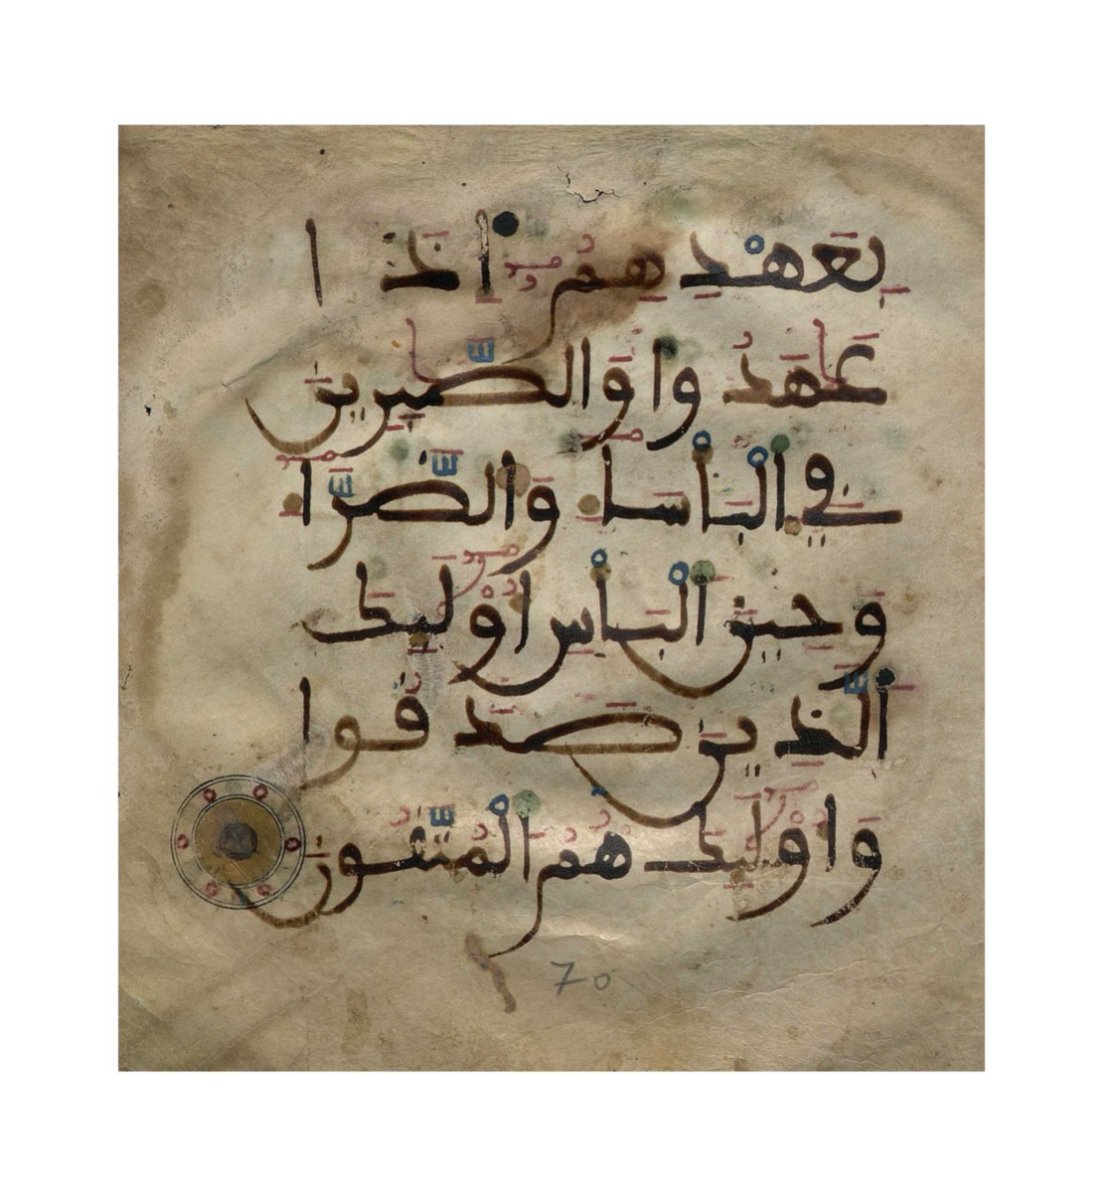 بِعَهْدِهِمُۥٓ إِذَا
عَٰهَدُواْ وَالصَّٰبِرِينَ
فِي الْبَأْسَآءِ وَالضَّرَّآءِ
وَحِينَ الْبَأْسِ أُوْلَٰٓئِكَ
الَّذِينَ صَدَقُواْ
وَأُوْلَٰٓئِكَ هُمُ الْمُتَّقُونَ
70